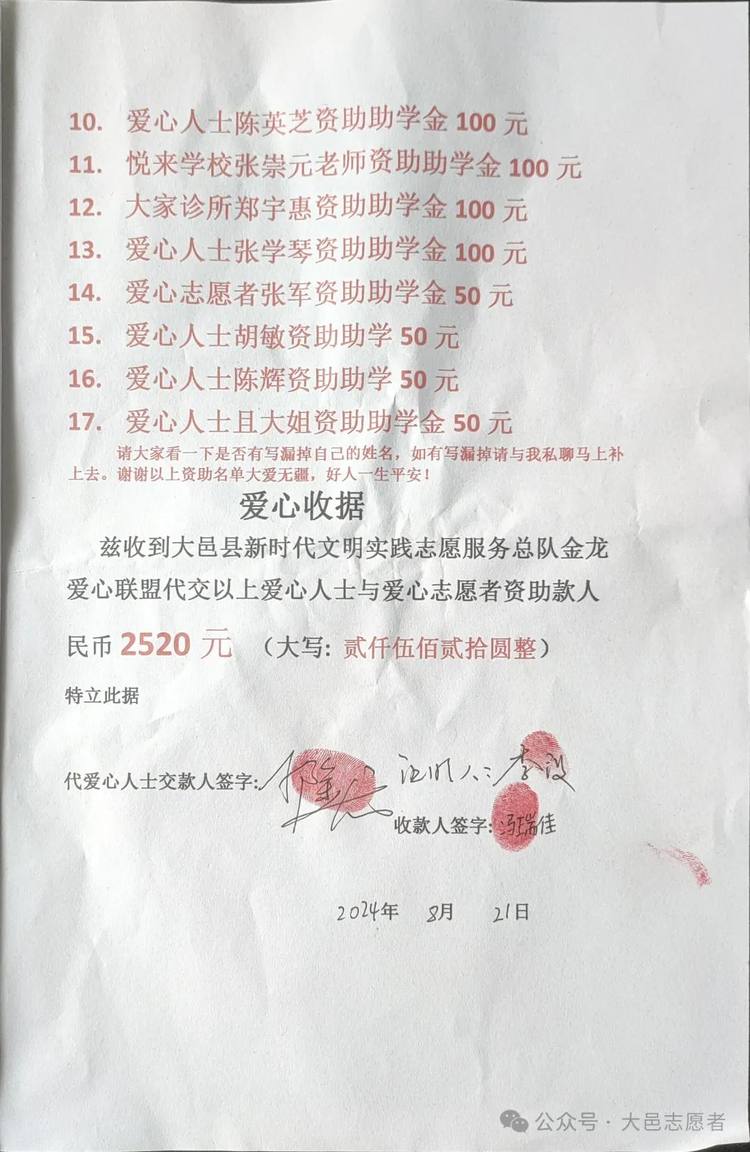 10. 爱心人士陈英芝资助助学金 100 元
11. 悦来学校张崇元老师资助助学金 100 元
12. 大家诊所郑宇惠资助助学金 100 元
13. 爱心人士张学琴资助助学金 100 元
14. 爱心志愿者张军资助助学金 50 元
15. 爱心人士胡敏资助助学 50 元
16. 爱心人士陈辉资助助学 50 元
17. 爱心人士且大姐资助助学金 50 元
请大家看一下是否有写漏掉自己的姓名，如有写漏掉请与我私聊马上补
上去。谢谢以上资助名单大爱无疆，好人一生平安！
爱心收据
兹收到大邑县新时代文明实践志愿服务总队金龙
爱心联盟代交以上爱心人士与爱心志愿者资助款人
民币 2520 元 （大写: 贰仟伍佰贰拾圆整）
特立此据
代爱心人士交款人签字: 证明人: 李
收款人签字: 冯瑞佳
2024年 8月 21日
公众号 · 大邑志愿者